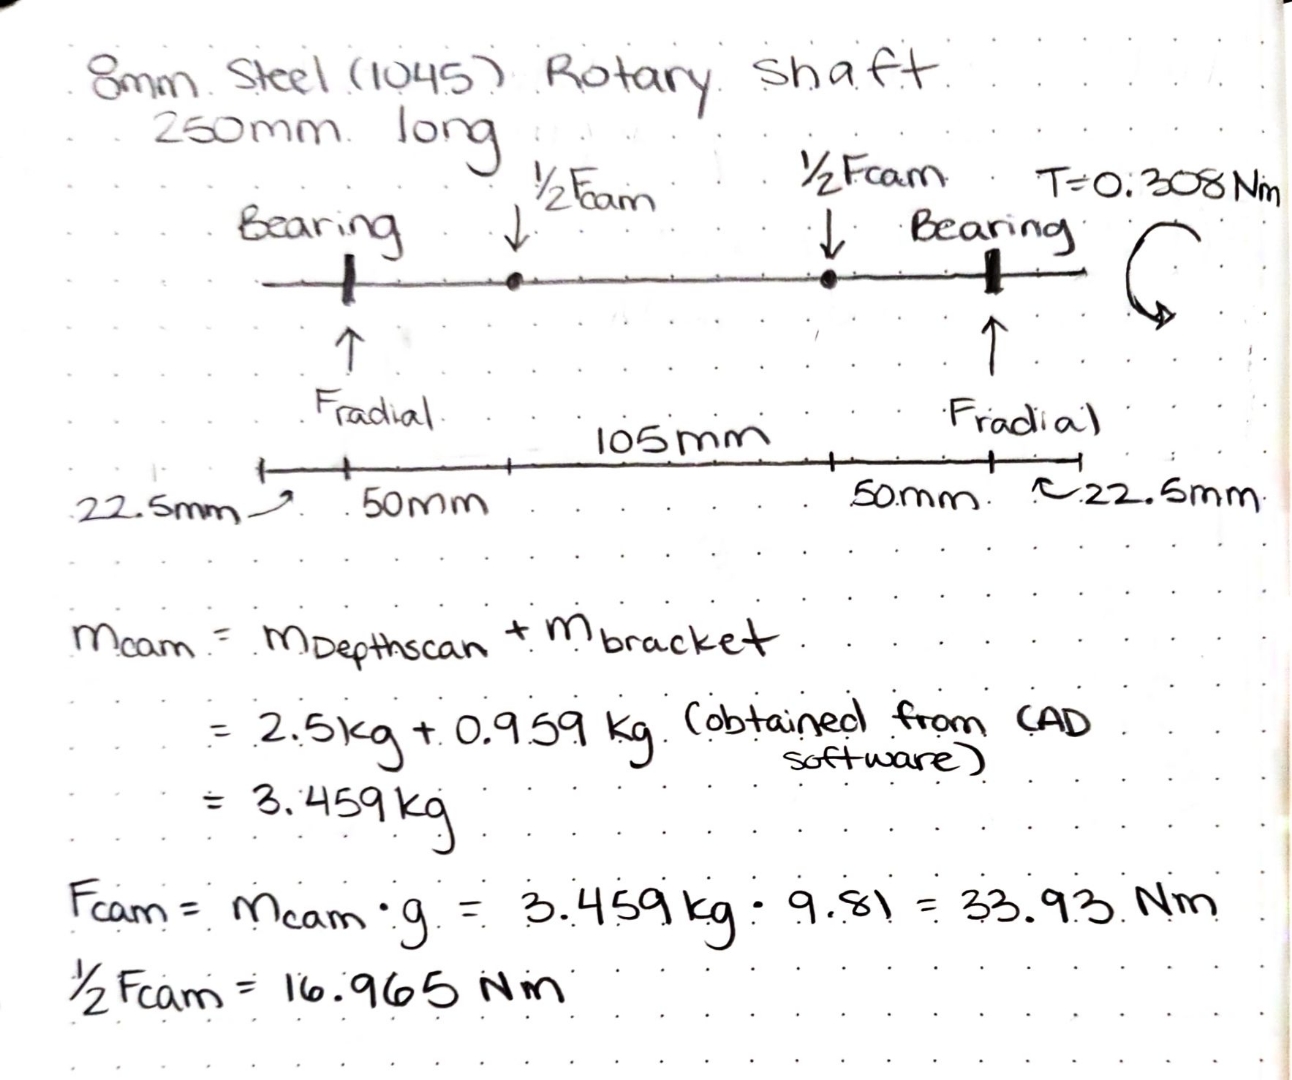 8mm Steel (1045) Rotary shaft
250mm long
½Fcam
½Fcam
T=0.308Nm
Bearing
Bearing
Fradial
Fradial
105mm
22.5mm
50mm
50mm
22.5mm
mcam = mDepthscan + mbracket
= 2.5kg + 0.959 kg (obtained from CAD
software)
= 3.459kg
Fcam = mcam · g = 3.459kg · 9.81 = 33.93 Nm
½ Fcam = 16.965 Nm